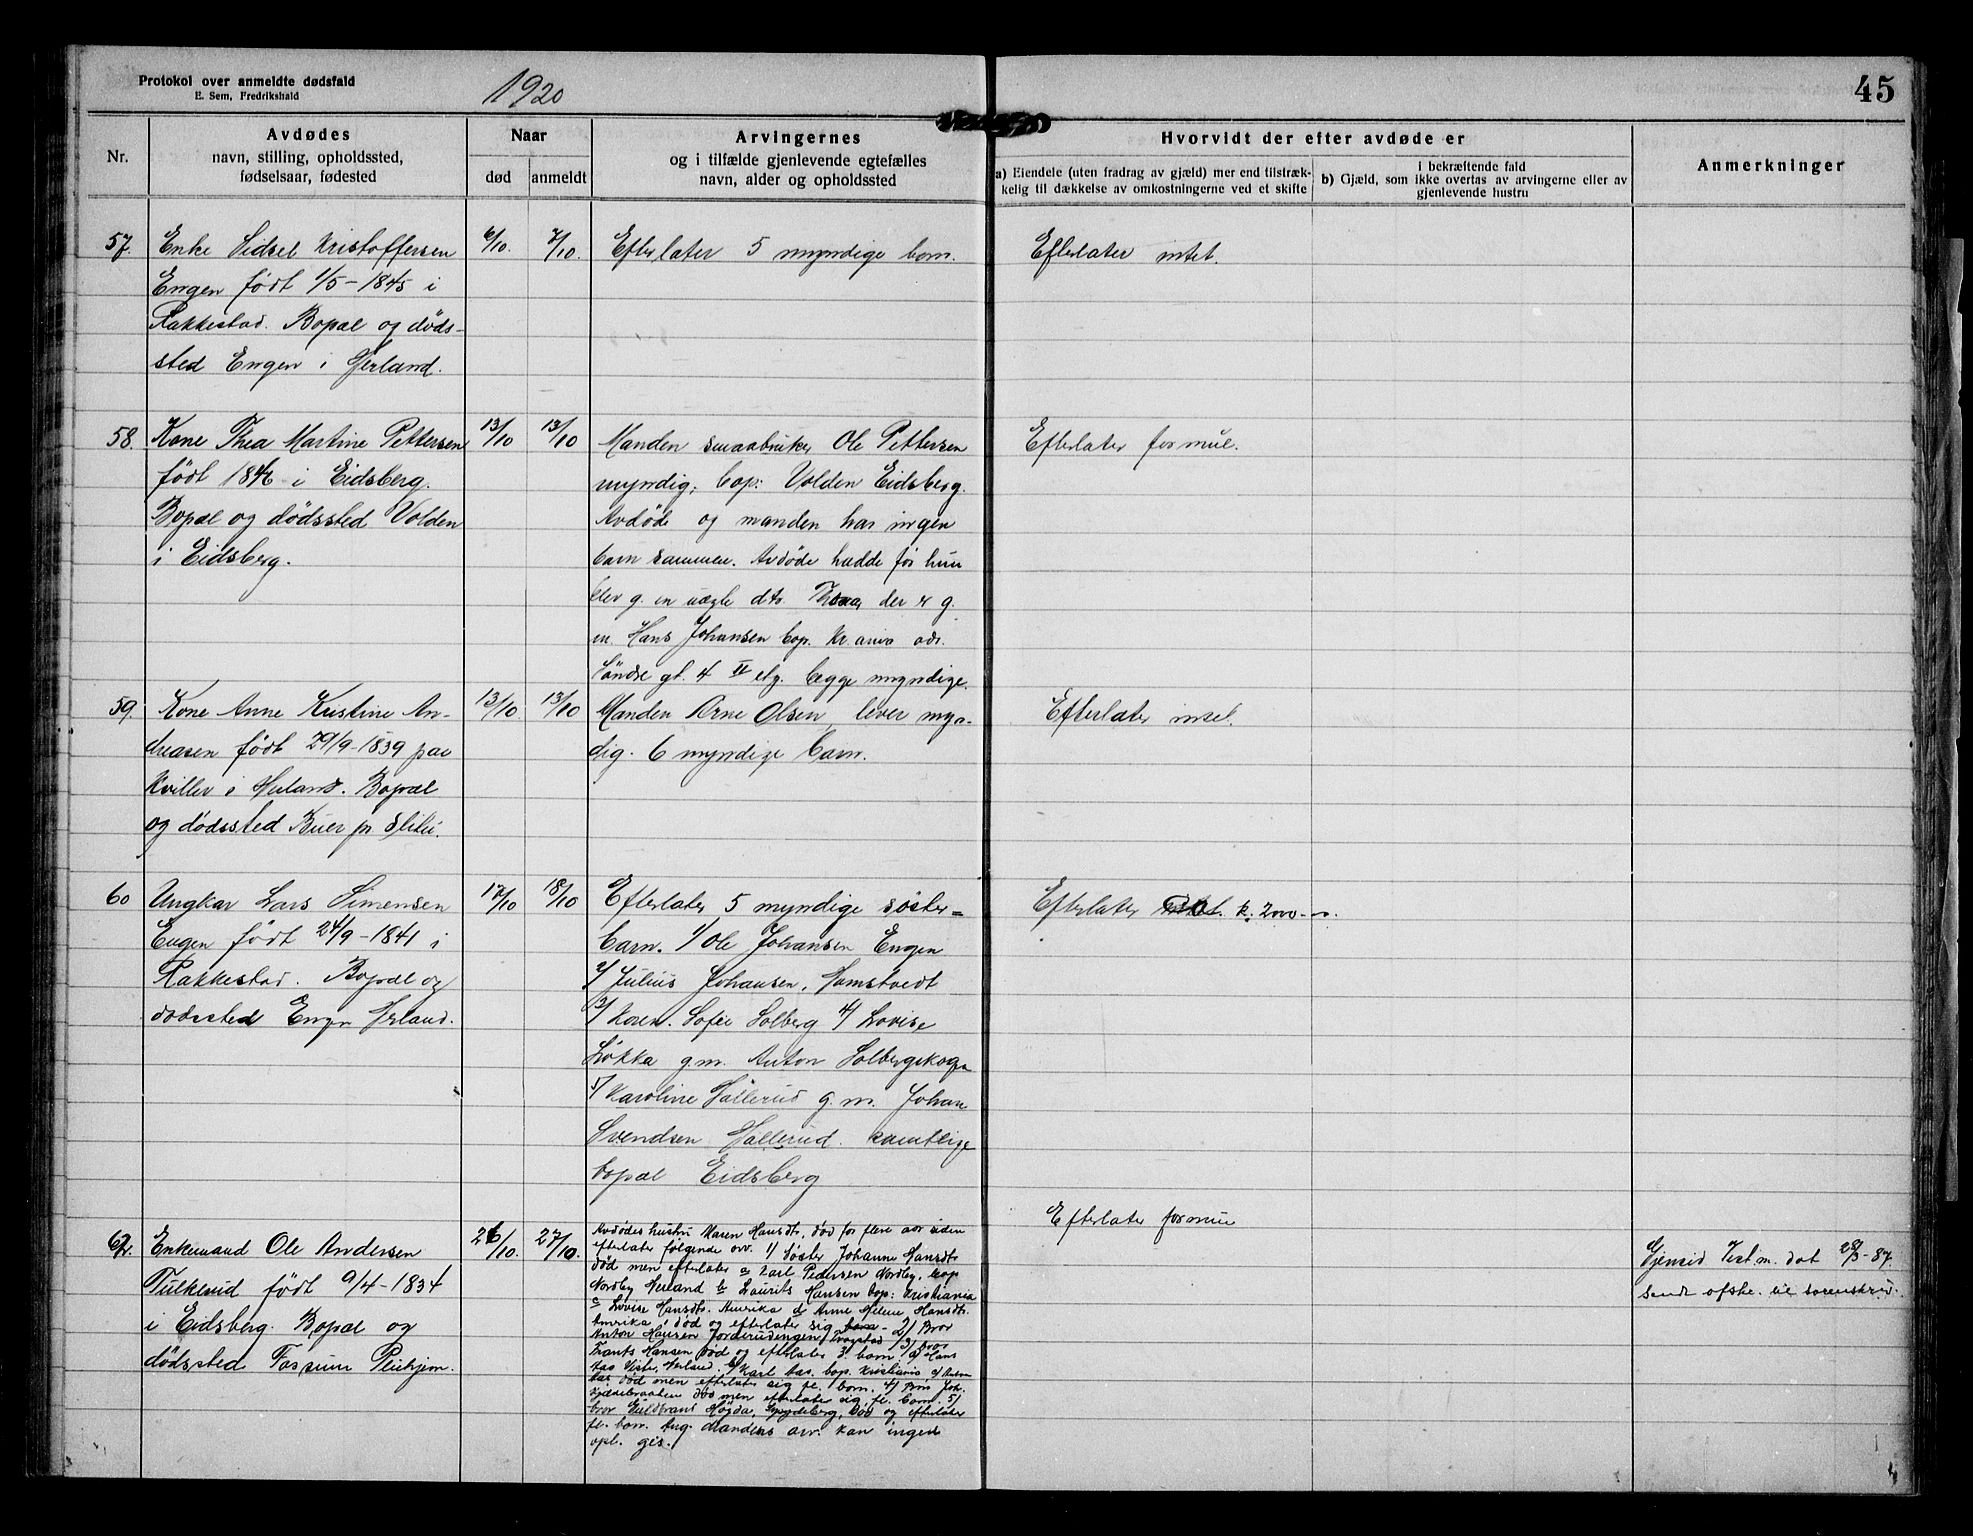 Protokol over anmeldte dødsfald
E. Sem, Fredrikshald
1920
45
Nr.
Avdødes
navn, stilling, opholdssted,
fødselsaar, fødested
Naar
død
anmeldt
Arvingernes
og i tilfælde gjenlevende egtefælles
navn, alder og opholdssted
Hvorvidt der efter avdøde er
a) Eiendele (uten fradrag av gjæld) mer end tilstræk-
kelig til dækkelse av omkostningerne ved et skifte
i bekræftende fald
b) Gjæld, som ikke overtas av arvingerne eller av
gjenlevende hustru
Anmerkninger
57.
Enke Sidsel Kristoffersen
Engen født 1/5-1845 i
Rakkestad. Bopæl og døds-
sted Engen i Herland.
6/10.
7/10.
Efterlater 5 myndige barn.
Efterlater intet.
58.
Kone Thea Martine Pettersen
født 1846 i Eidsberg.
Bopæl og dødssted Volden
i Eidsberg.
13/10
13/10
Manden smaabruker Ole Pettersen
myndig, bop: Volden Eidsberg.
Avdøde og manden har ingen
barn sammen. Avdøde hadde før hun
blev g. en uægte dtr. der er g.
m. Hans Johansen bop. Kr.ania adr.
Søndre gt. 4 II etg. begge myndige.
Efterlater formue.
59.
Kone Anne Kristine An-
dreasen født 29/9-1839 paa
Kviller i Herland. Bopæl
og dødssted Buer pr Slitu.
13/10
13/10
Manden Arne Olsen lever myn-
dig. 6 myndige barn.
Efterlater intet.
60
Ungkar Lars Simensen
Engen født 24/9-1841 i
Rakkestad. Bopæl og
dødssted Engen Herland.
17/10
18/10
Efterlater 5 myndige søster=
barn. 1/ Ole Johansen Engen
2/ Julius Johansen, Hamstvedt
3/ Karen Sofie Solberg 4/ Lovise
Løkka g.m. Anton Solbergskogen
5/ Karoline Høllerud g.m. Johan
Svendsen Høllerud. samtlige
bopæl Eidsberg
Efterlater k. 2000-
62.
Enkemand Ole Andersen
Tulkerud født 9/4-1834
i Eidsberg. Bopæl og
dødssted Fossum Pleiehjem.
26/10.
27/10.
Avdødes hustru Maren Hansdtr. død for flere aar siden
efterlater følgende arv. 1) Søster Johanne Hansdtr
død men efterlater a Karl Pedersen Nordby, bop
Nordby Herland b Laurits Hansen bop: Kristiania
c Lovise Hansdtr. Amerika d Anne Helene Hansdtr.
Amerika, død og efterlater sig barn - 2) Bror
Anton Hansen Jorderudengen Trøgstad 3) bror
Frants Hansen død og efterlater 3 barn a) Hans
Herland. b) Karl bop. Kristiania c) Anton
død men efterlater sig fl. barn. 4) Bror Joh.
død men efterlater sig fl. barn. 5)
bror Guldbrand Høyda, Spydeberg, død og efterlater
fl. barn. Ang. mandens arv. kan ingen
opl. gis.
Efterlater formue
Gjensid. Test.m. dat 28/3-87.
sendt avskr. til sorenskriv.